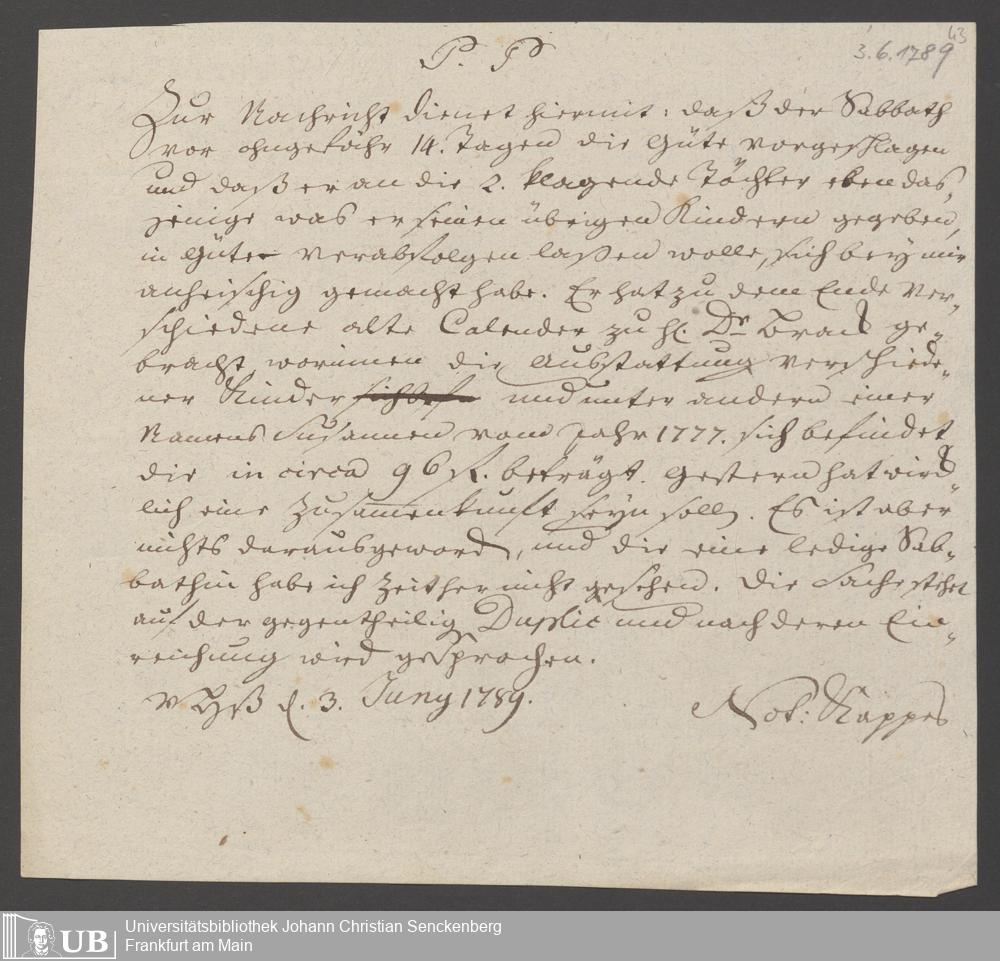 43
3.6.1789
P. P
Zur Nachricht dienet hiermit: daß der Sabbath
vor ohngefähr 14. Tagen die Güte vorgeschlagen
und daß er an die 2. klagende Töchter eben das,
jenige was er seinen übrigen Kindern gegeben,
in Güte verabfolgen laßen wolle, sich bey mir
anheischig gemacht habe. Er hat zu dem Ende ver,
schiedene alte Calender zu H. Dr ge,
bracht, worinnen die Ausstattung verschiede,
ner Kinder und unter andern einer
Namens Susannen vom Jahr 1777. sich befindet
die in circa 96 f. beträgt. Gestern hat
lich eine Zusammenkunft seyn sollen. Es ist aber
nichts daraus geworden, und die eine ledige Sab,
bathin habe ich zeither nicht gesehen. Die Sache stehet
auf der gegentheilig Duplic und nach deren Ein,
reichung wird gesprochen.
d. 3. Juny 1789.
Not: Kappes
UB
Universitätsbibliothek Johann Christian Senckenberg
Frankfurt am Main